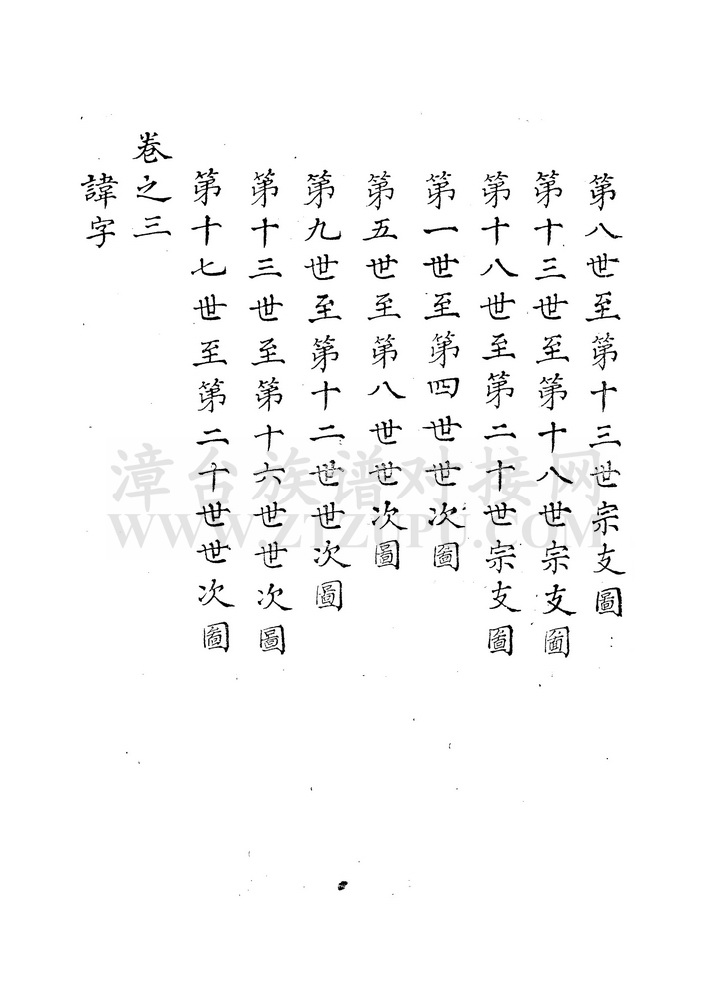 第八世至第十三世宗支圖
第十三世至第十八世宗支圖
第十八世至第二十世宗支圖
第一世至第四世世次圖
第五世至第八世世次圖
第九世至第十二世世次圖
第十三世至第十六世世次圖
第十七世至第二十世世次圖
卷之三
諱字
漳台族谱对接网
WWW.ZTZUPU.COM